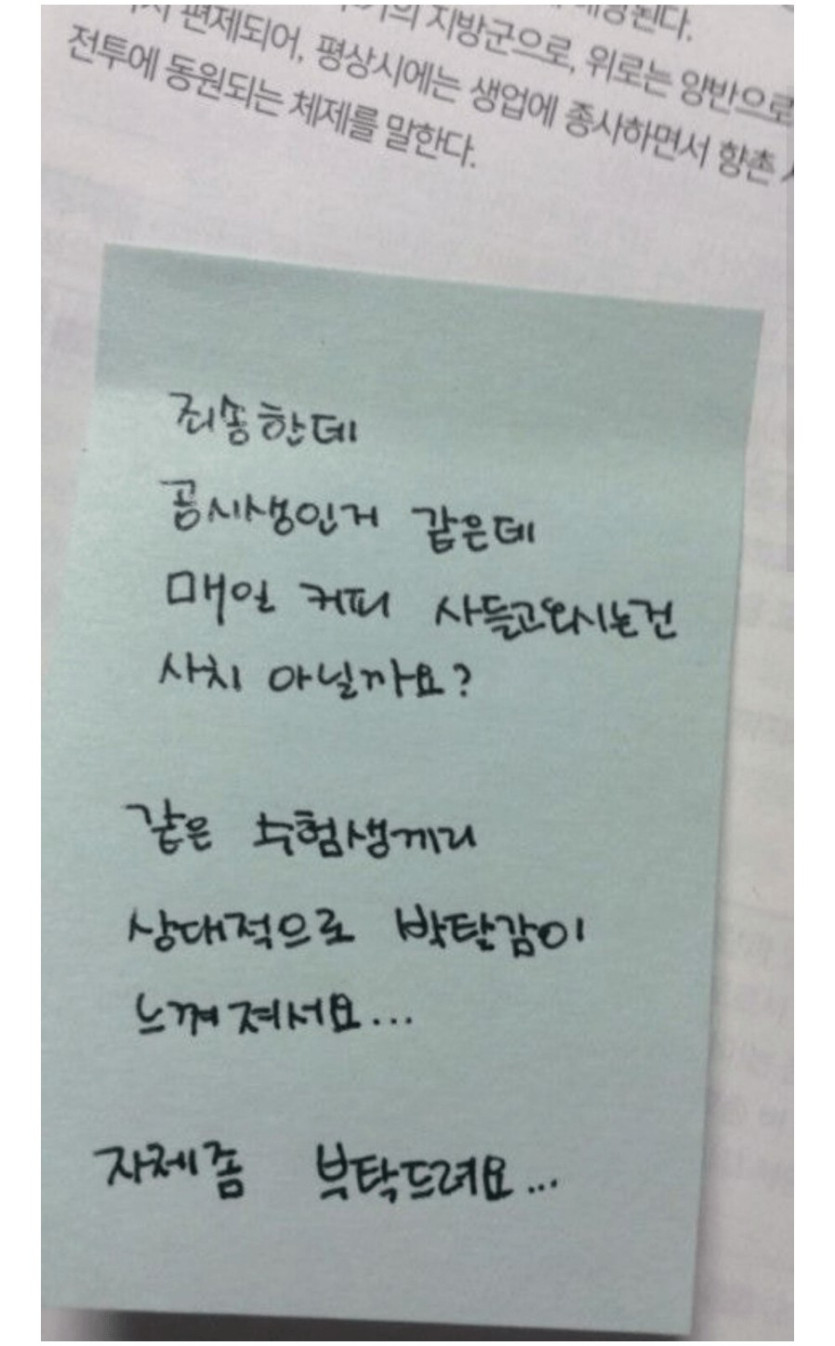 편제되어, 평상시에는 생업에 종사하면서 향촌
지방군으로, 위로는 양반으로
전투에 동원되는 체제를 말한다.
죄송한데
공시생인거 같은데
매일 커피 사들고와시는건
사치 아닐까요?
같은 수험생끼리
상대적으로 박탈감이
느껴져서요...
자제좀 부탁드려요...